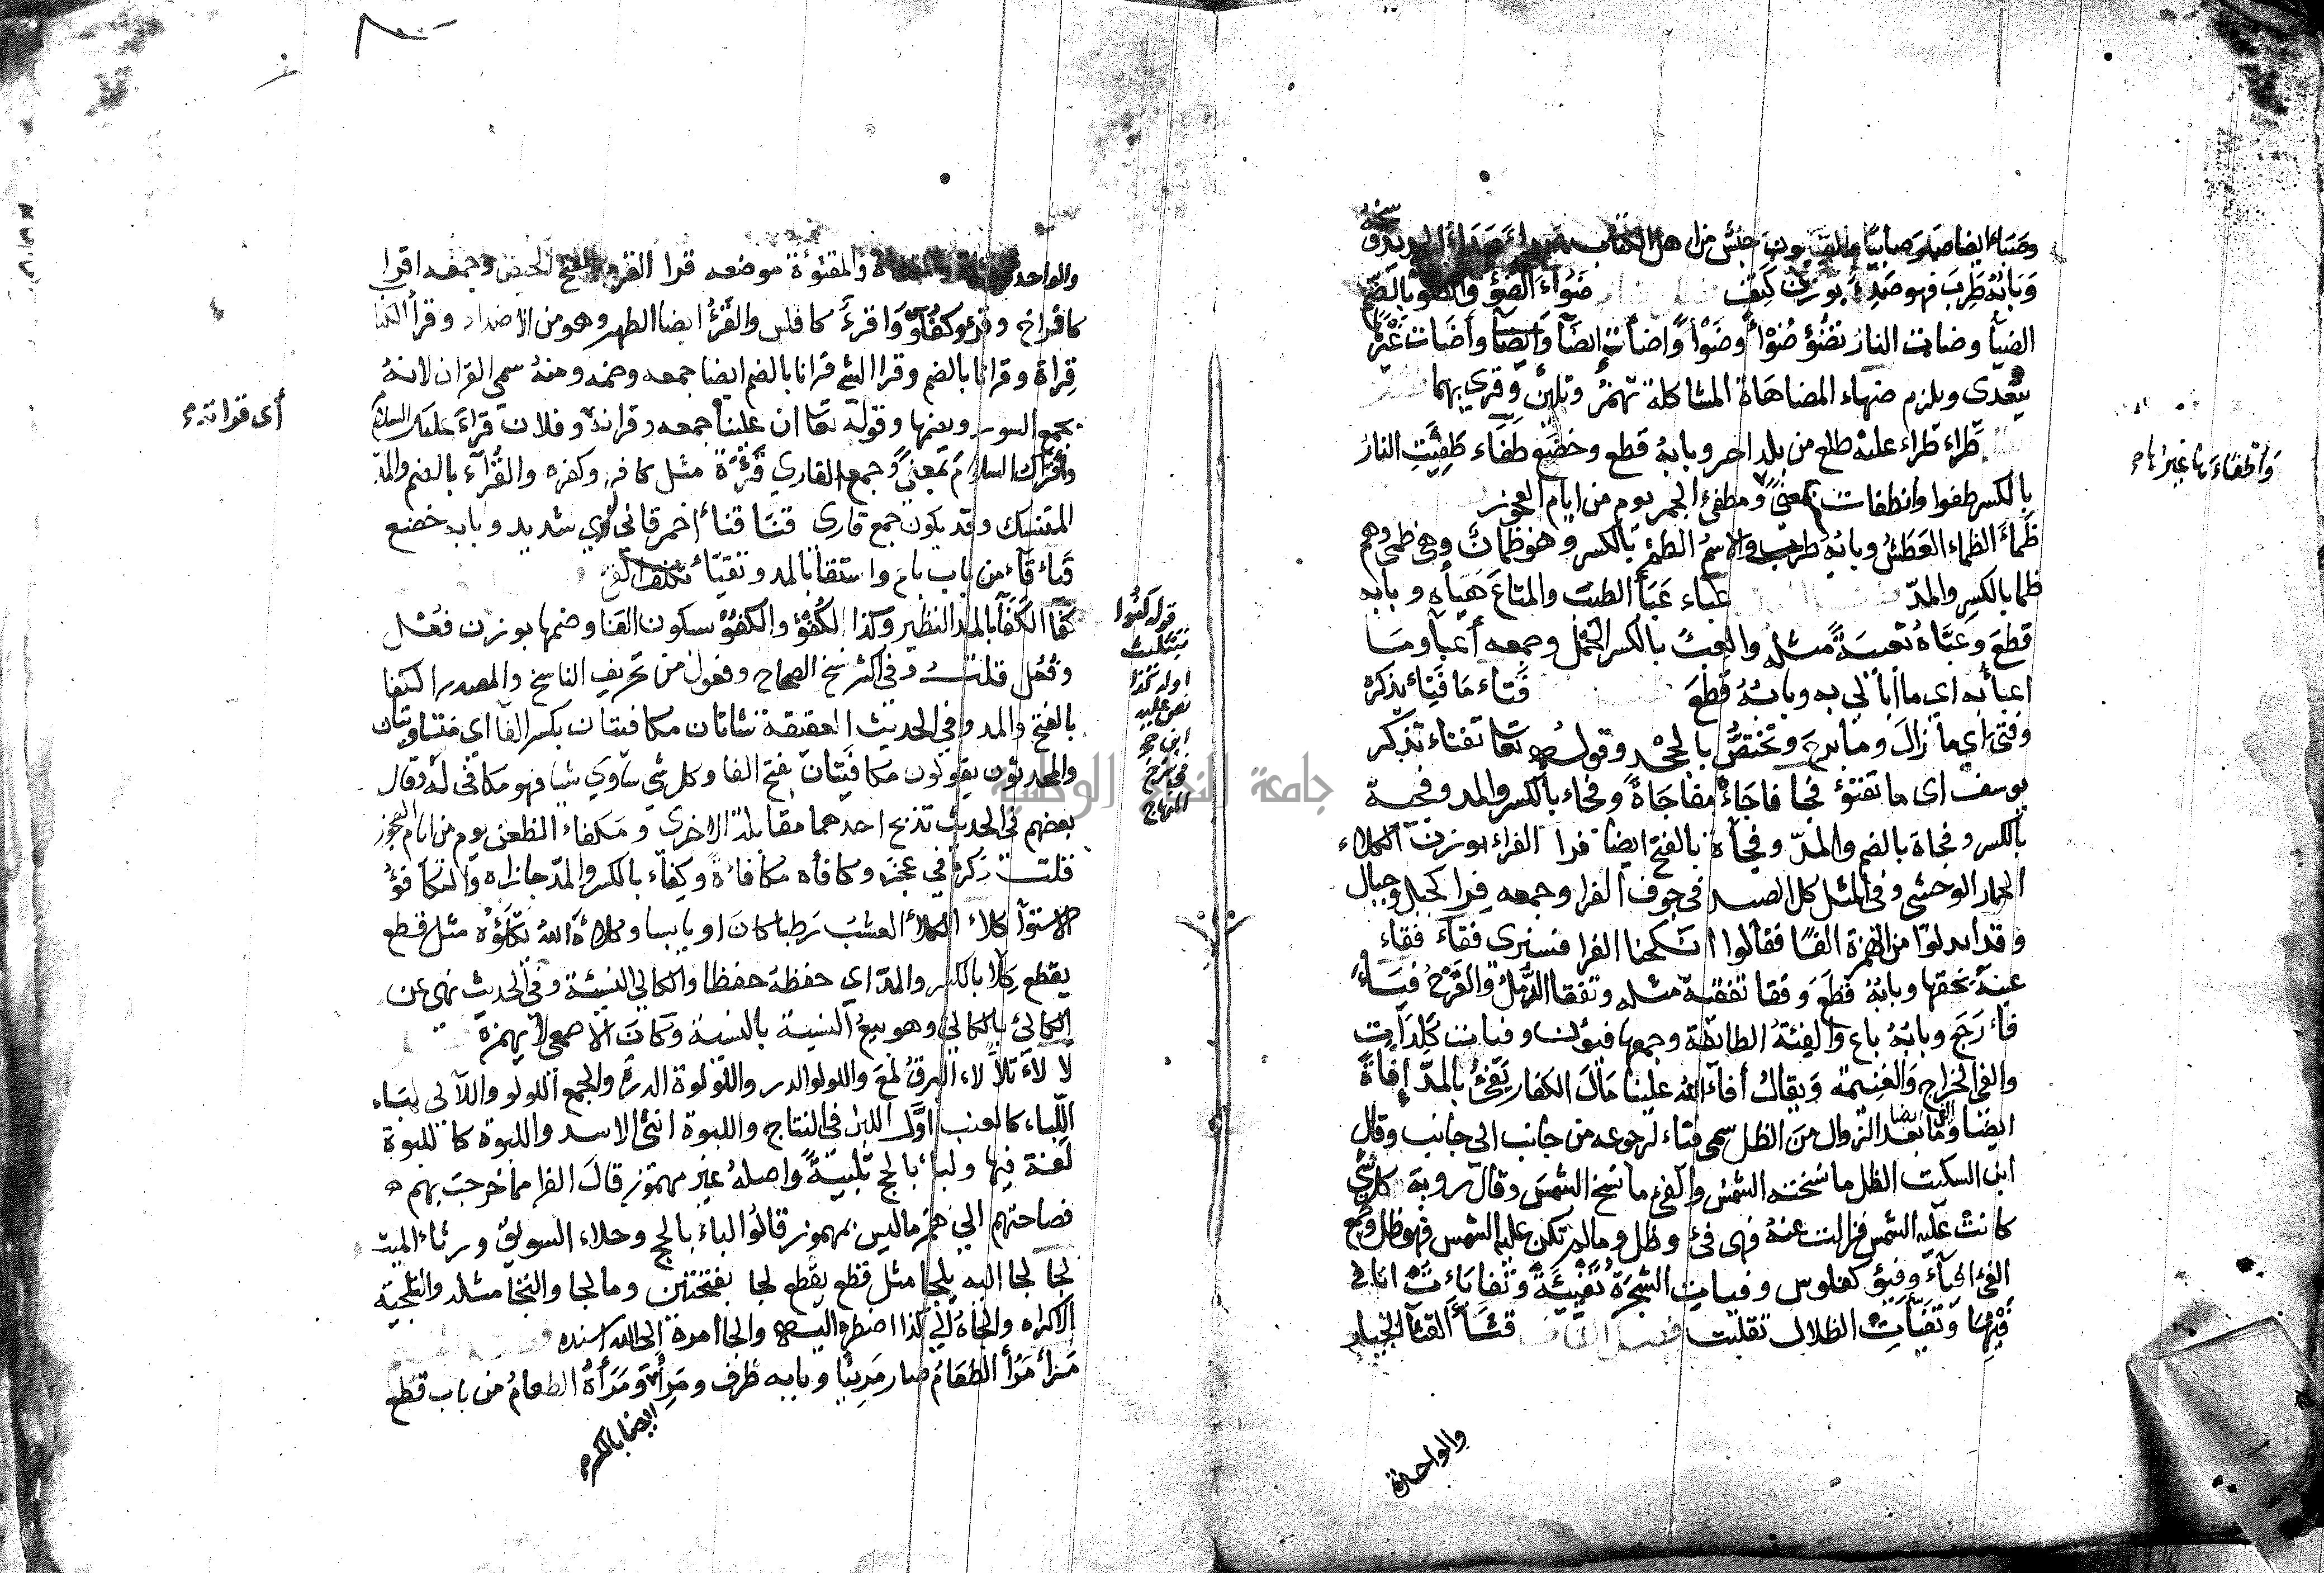 وصباء ايضا صار صابيا والصابيون جنس من اهل الكتاب صداء صداء الحديد وسخه
وبابه طرب فهو صدئ بوزن كتف ضواء الضوء والضوء بالضم
الضيآ وضات النار تضوء ضوأ وضوأ واضأت ايضآ وايضآ وأضات غيرها
يتعدى ويلزم ضهاء المضاهاة المشاكلة تهمز وتلين وقري بهما
طراء طراء عليه طلع من بلد اخر وبابه قطع وخضع طفاء طفيت النار
بالكسر طفوا وانطفات بمعنى ومطفئ الجمر يوم من ايام العجوز
واطفاءها غيرها م
ظماء الظماء العطش وبابه طرب والاسم الظمء بالكسر وهو ظمان وهي ظمى وهم
ظما بالكسر والمد عباء عبأ الطيب والمتاع هياه وبابه
قطع وعباه تعبية مثله والعبء بالكسر الحمل وجمعه أعبآ وما
اعبأ به اي ما ابالي به وبابه قطع فتاء ما فتئ يذكره
وفتى اي ما زال وما برح وتختص بالجحد وقوله تعا تفتاء تذكر
يوسف اى ما تفتؤ فجا فاجاه مفاجاة وفجاء بالكسر والمد وفجية
بالكسر وفجاة بالضم والمد وفجأة بالفتح ايضا فرا الفراء بوزن الكلاء
الحمار الوحشى وفي المثل كل الصيد في جوف الفرا وجمعه فرا كجبل وجبال
وقد ابدلوا من الهمزة الفا فقالوا انكحنا الفرا فسنرى فقآء فقاء
عينه بحقها وبابه قطع وفقا تفقية مثله وتفقا الدمل والقرح فياء
فاء رجع وبابه باع والفئة الطائفة وجمعها فئون وفيات كلدات
والفى الخراج والغنيمة ويقال أفآء الله علينا مال الكفار يفئ بالمد إفاة
ايضا وما بعد الزوال من الظل سمى فياء لرجوعه من جانب الى جانب وقال
الفئ ايضا
ابن السكيت الظل ما نسخته الشمس والفئ ما نسخ الشمس وقال روبة كل شي
كانت عليه الشمس فزالت عنه فهى فئ وظل وما لم تكن عليه الشمس فهو ظل وجمع
الفئ افيآء وفيؤ كفلوس وفيات الشجرة تفيئة وتفايات انا في
فيئها وتفيأت الظلال تقلبت قثأ القثآ الخيار
والواحدة
والواحدة والمقثاة والمقثوءة موضعه قرا القرء بالفتح الحيض وجمعه اقرا
كافراخ وقرؤ كفلوس واقرء كافلس والقرء ايضا الطهر وهو من الاضداد وقرأ الكتا
قراة وقرانا بالضم وقرا الشئ قرانا بالضم ايضا جمعه وضمه ومنه سمى القران لانه
يجمع السور ويضمها وقوله تعا ان علينا جمعه وقرانه وفلان قراء عليك السلام
أى قراته م
واقرأك السلام بمعنى وجمع القاري قرءة مثل كافر وكفره والقرآء بالضم والمد
المتنسك وقد يكون جمع قارى قنا قناء احمر قاني اي شديد وبابه خضع
قياء قآء من باب باع واستقآ بالمد وتقياء تكلف القئ
كفا الكفآ بالمد النظير وكذا الكفؤ والكفؤ بسكون الفا وضمها بوزن فعل
وفعل قلت وفي اكثر نسخ الصحاح وفعول من تحريف الناسخ والمصدر الكفا
بالفتح والمد وفي الحديث العقيقة شاتان مكافيتان بكسر الفآ اي متساويتان
والمحدثون يقولون مكافيتان بفتح الفا وكل شي ساوي شيا فهو مكافى له وقال
بعضهم في الحديث تذبح احدهما مقابلة الاخرى ومكفاء الظعن يوم من ايام العجوز
قلت ذكره في عجز وكافاه مكافاة وكفاء بالكسر والمد جازاه والتكافؤ
الاستوآ كلاء الكلأ العشب رطبا كان او يابسا وكلاه الله يكلؤه مثل قطع
يقطع كلأ بالكسر والمد اي حفظه حفظا والكالئ النسيئة وفي الحديث نهى عن
الكالئ بالكالئ وهو بيع النسية بالنسية وكان الاصمعى لا يهمزه
لالاء تلألاء البرق لمع واللولو الدر واللولوة الدرة والجمع اللولو واللآلى لباء
اللباء كالعنب اول اللبن في النتاج واللبوة انثى الاسد واللبوة كاللبوة
لغة فيها ولباء بالحج تلبية واصله غير مهموز قال الفرا مما خرجت بهم
فصاحتهم الي همز ما ليس بمهموز قالوا لباء بالحج وحلاء السويق ورثاء الميت
لجا لجا اليه يلجا مثل قطع يقطع لجا بفتحتين وملجا والتجا مثله والتلجية
الاكراه والجاه الي كذا اضطره اليه والجا امره الى الله اسنده
مرا مرأ الطعام صار مريئا وبابه ظرف ومرا ومرأه الطعام من باب قطع
ايضا بالكسر م
قوله كفوا
بتثليث
اوله كذا
نص عليه
ابن حجر
في شرح
المنهاج
جامعة النجاح الوطنية